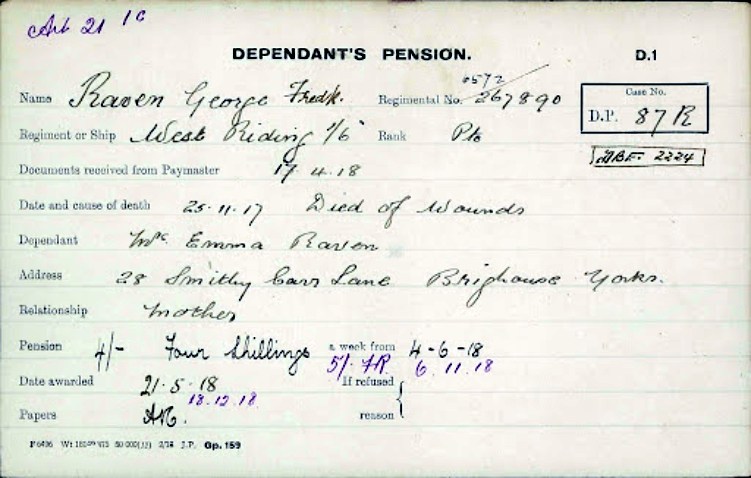 21 1c
DEPENDANT'S PENSION. D.1
6572
Name Raven George Fredk. Regimental No. 267890 Case No.
D.P. 87R
Regiment or Ship West Riding 1/6 Rank Pte
DBF. 2224
Documents received from Paymaster 17.4.18
Date and cause of death 25.11.17 Died of Wounds
Dependant Mrs. Emma Raven
Address 28 Smithy Carr Lane Brighouse Yorks.
Relationship Mother
Pension 4/- Four Shillings a week from 4-6-18
5/- FR 6.11.18
Date awarded 21.5.18 If refused
18.12.18
Papers reason